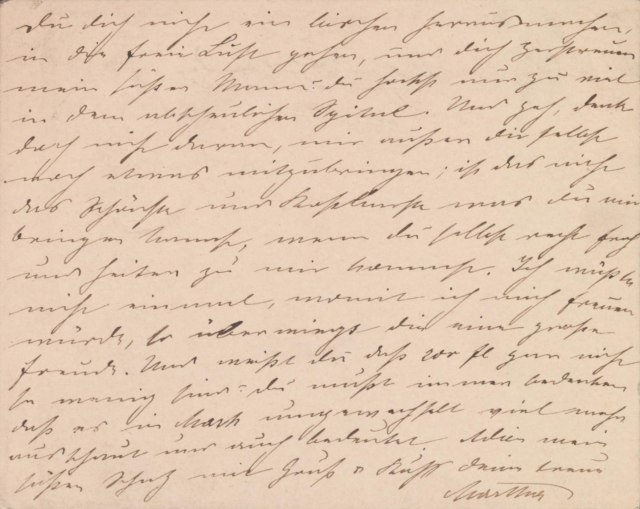 Du dich nicht ein bischen herausmachen,
in die freie Luft gehen, und dich zerstreuen
mein süßer Mann? du hockst nur zu viel
in dem abscheulichen Spital. Und geh, denk
doch nicht daran, mir außer dir selbst
noch etwas mitzubringen; ist das nicht
das Schönste und Kostbarste was du mir
bringen kannst, wenn du selbst recht froh
und heiter zu mir kommst. Ich wüßte
nicht einmal, womit ich mich freuen
würde, so überwiegt die eine große
Freude. Und weißt du daß 200 fl gar nicht
so wenig sind? du mußt immer bedenken
daß es in Mark umgewechselt viel mehr
ausschaut und auch bedeutet. Adieu mein
süßer Schatz mit Gruß & Kuß deine treue
Martha